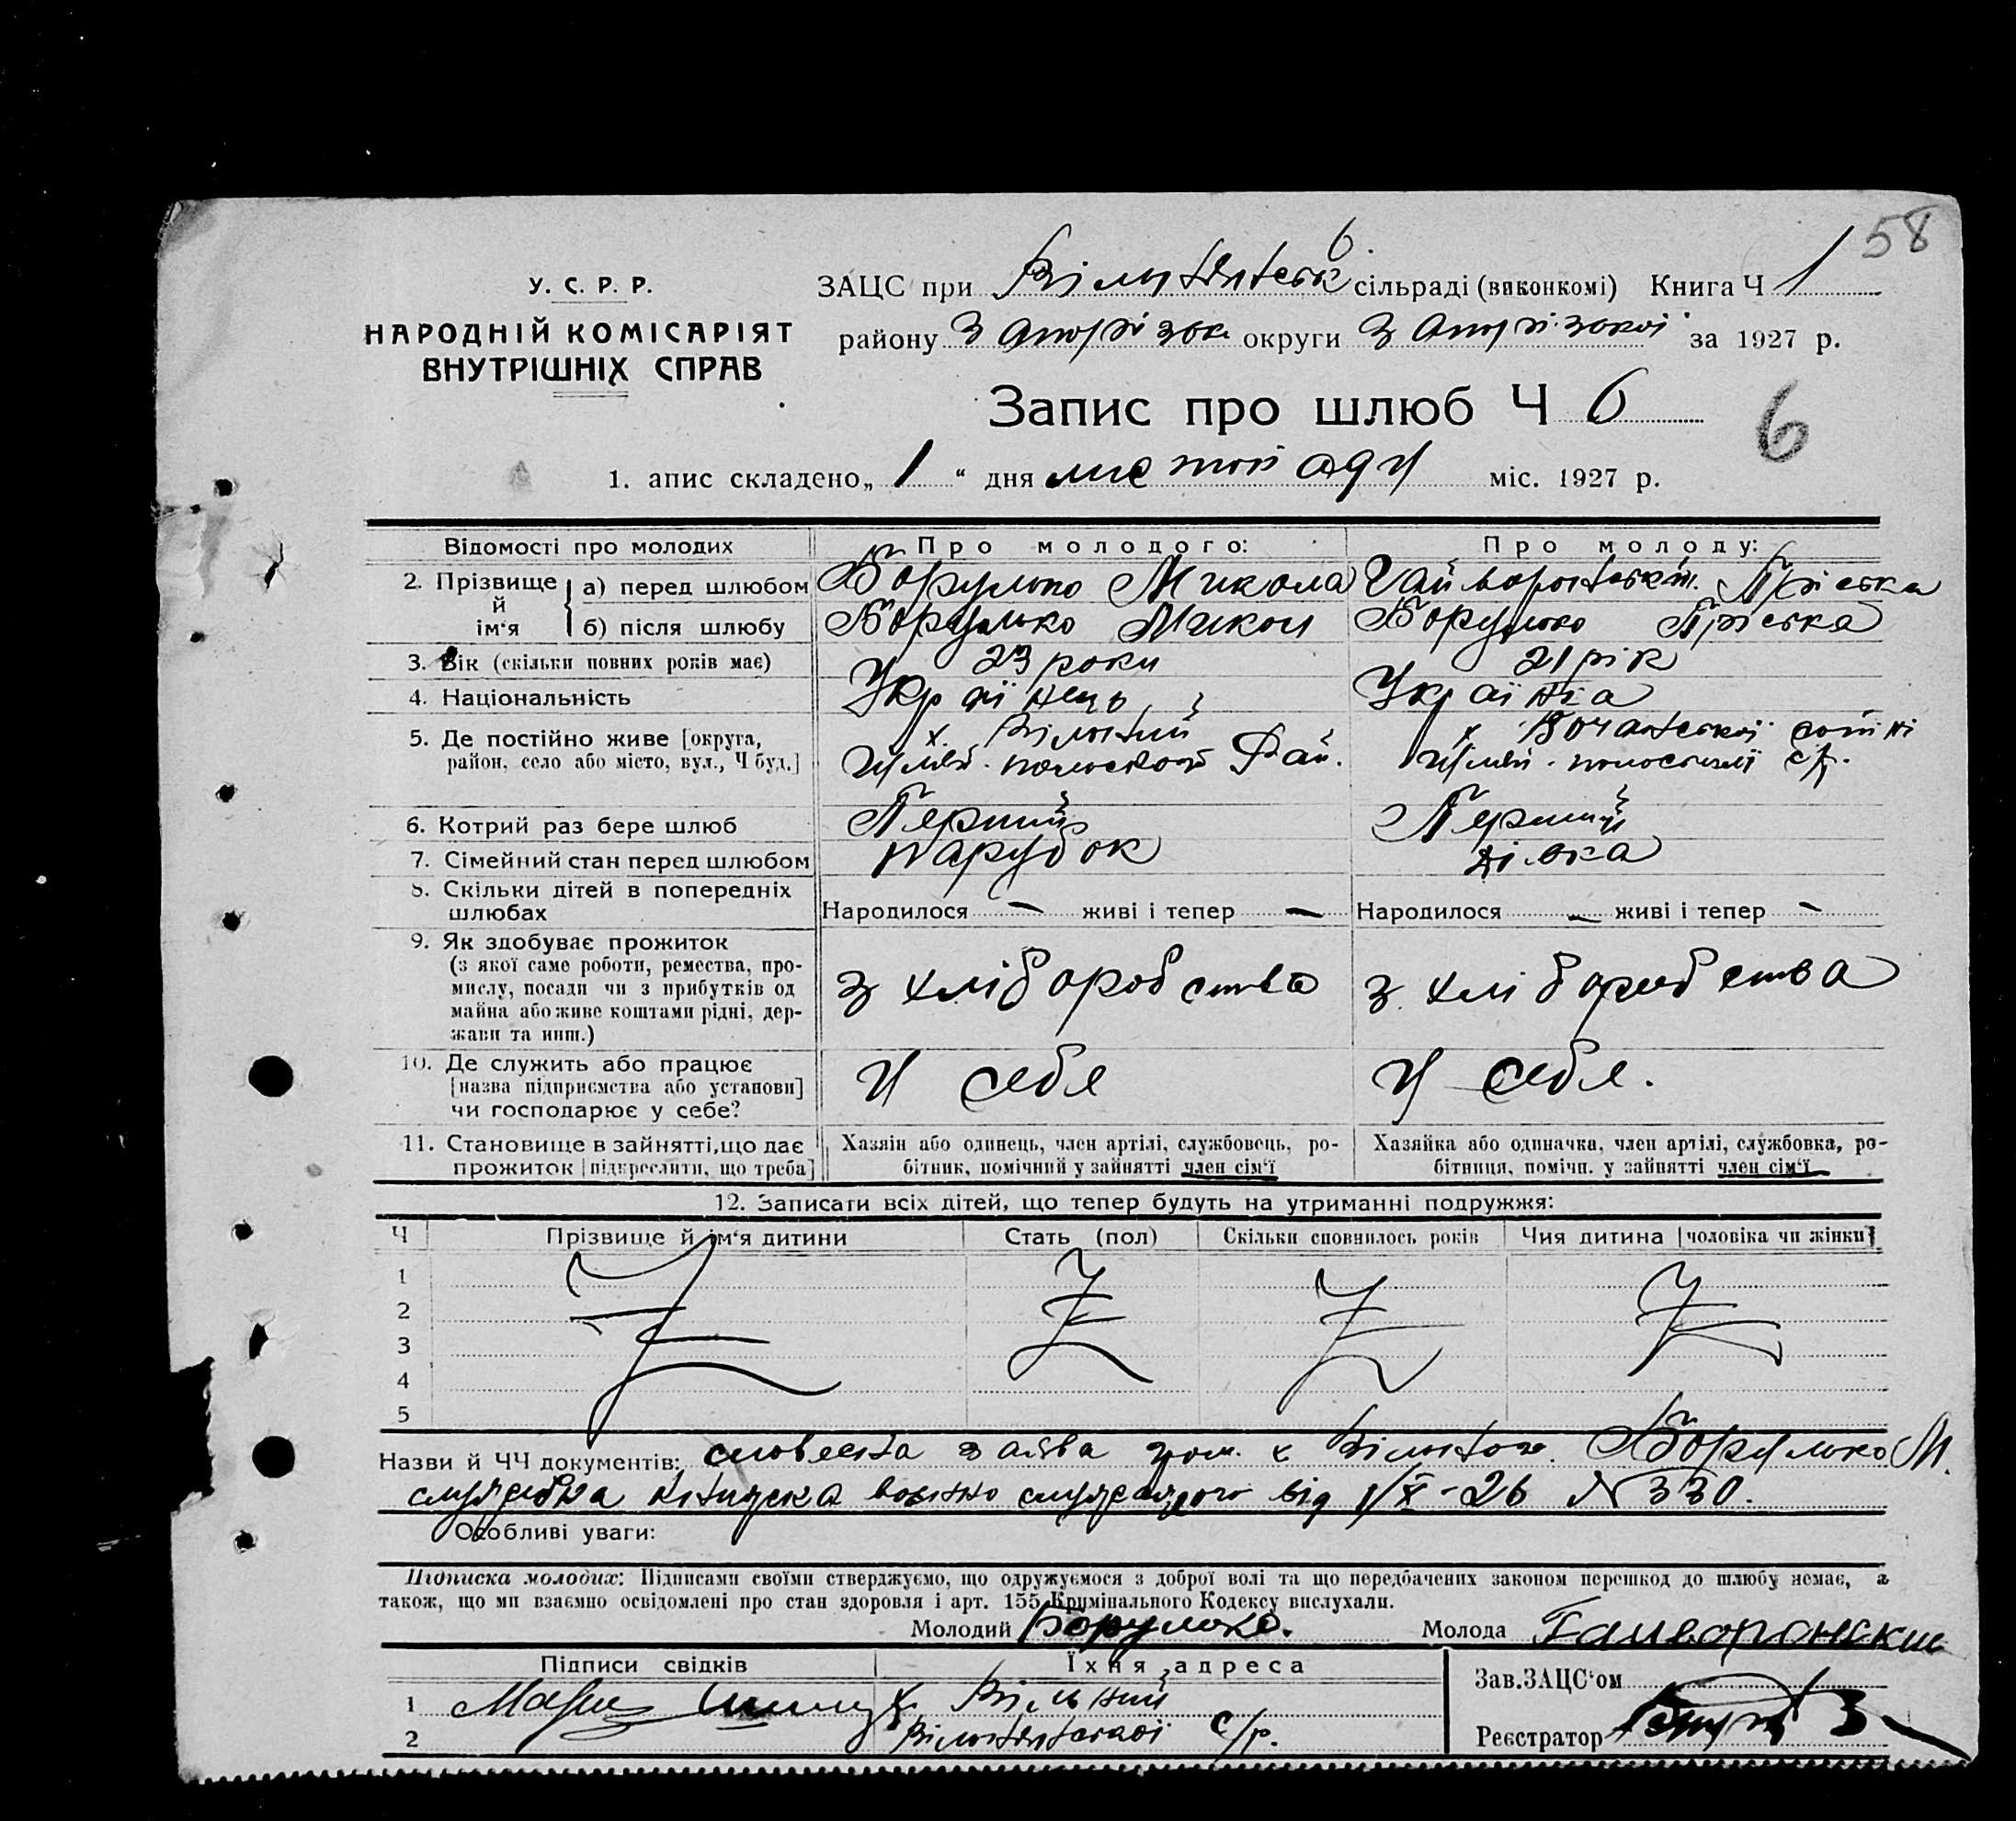 58
У. С. Р. Р.
НАРОДНІЙ КОМІСАРІЯТ
ВНУТРІШНІХ СПРАВ
ЗАЦС при сільраді (виконкомі) Книга Ч 1
району Запорізьк. округи Запорізької за 1927 р.
Запис про шлюб Ч 6
6
1. апис складено „ 1 “ дня листопаду міс. 1927 р.
Відомості про молодих Про молодого: Про молоду:
2. Прізвище й ім‘я а) перед шлюбом Борулько Микола Гайворонськ. Пріська
б) після шлюбу Борулько Микол Борулько Пріська
3. Вік (скільки повних років має) 23 роки 21 рік
4. Національність Українець Українка
5. Де постійно живе [округа, х. Вільний х. сотні
район, село або місто, вул., Ч буд.] Рай. с/р.
6. Котрий раз бере шлюб Перший Перший
7. Сімейний стан перед шлюбом парубок дівка
8. Скільки дітей в попередніх
шлюбах Народилося — живі і тепер — Народилося — живі і тепер —
9. Як здобуває прожиток
(з якої саме роботи, ремества, про-
мислу, посади чи з прибутків од з хліборобства з хліборобства
майна або живе коштами рідні, дер-
жави та инш.)
10. Де служить або працює
[назва підприємства або установи] у себе у себе.
чи господарює у себе?
11. Становище в зайнятті, що дає Хазяїн або одинець, член артілі, службовець, ро- Хазяйка або одиначка, член артілі, службовка, ро-
прожиток [підкреслити, що треба] бітник, помічний у зайнятті член сім‘ї бітниця, помічн. у зайнятті член сім‘ї
12. Записати всіх дітей, що тепер будуть на утриманні подружжя:
Ч Прізвище й ім‘я дитини Стать (пол) Скільки сповнилось років Чия дитина [чоловіка чи жінки]
1
2
3
4
5
Назви й ЧЧ документів: словесна заява гром. х Борулько М.
книжка від 1/X-26 № 330.
Особливі уваги:
Підписка молодих: Підписами своїми стверджуємо, що одружуємося з доброї волі та що передбачених законом перешкод до шлюбу немає, а
також, що ми взаємно освідомлені про стан здоровля і арт. 155 Кримінального Кодексу вислухали.
Молодий Борулько. Молода Гайворонская
Підписи свідків Їхня адреса Зав.ЗАЦС‘ом
1 х. Вільний
2 с/р. Реєстратор